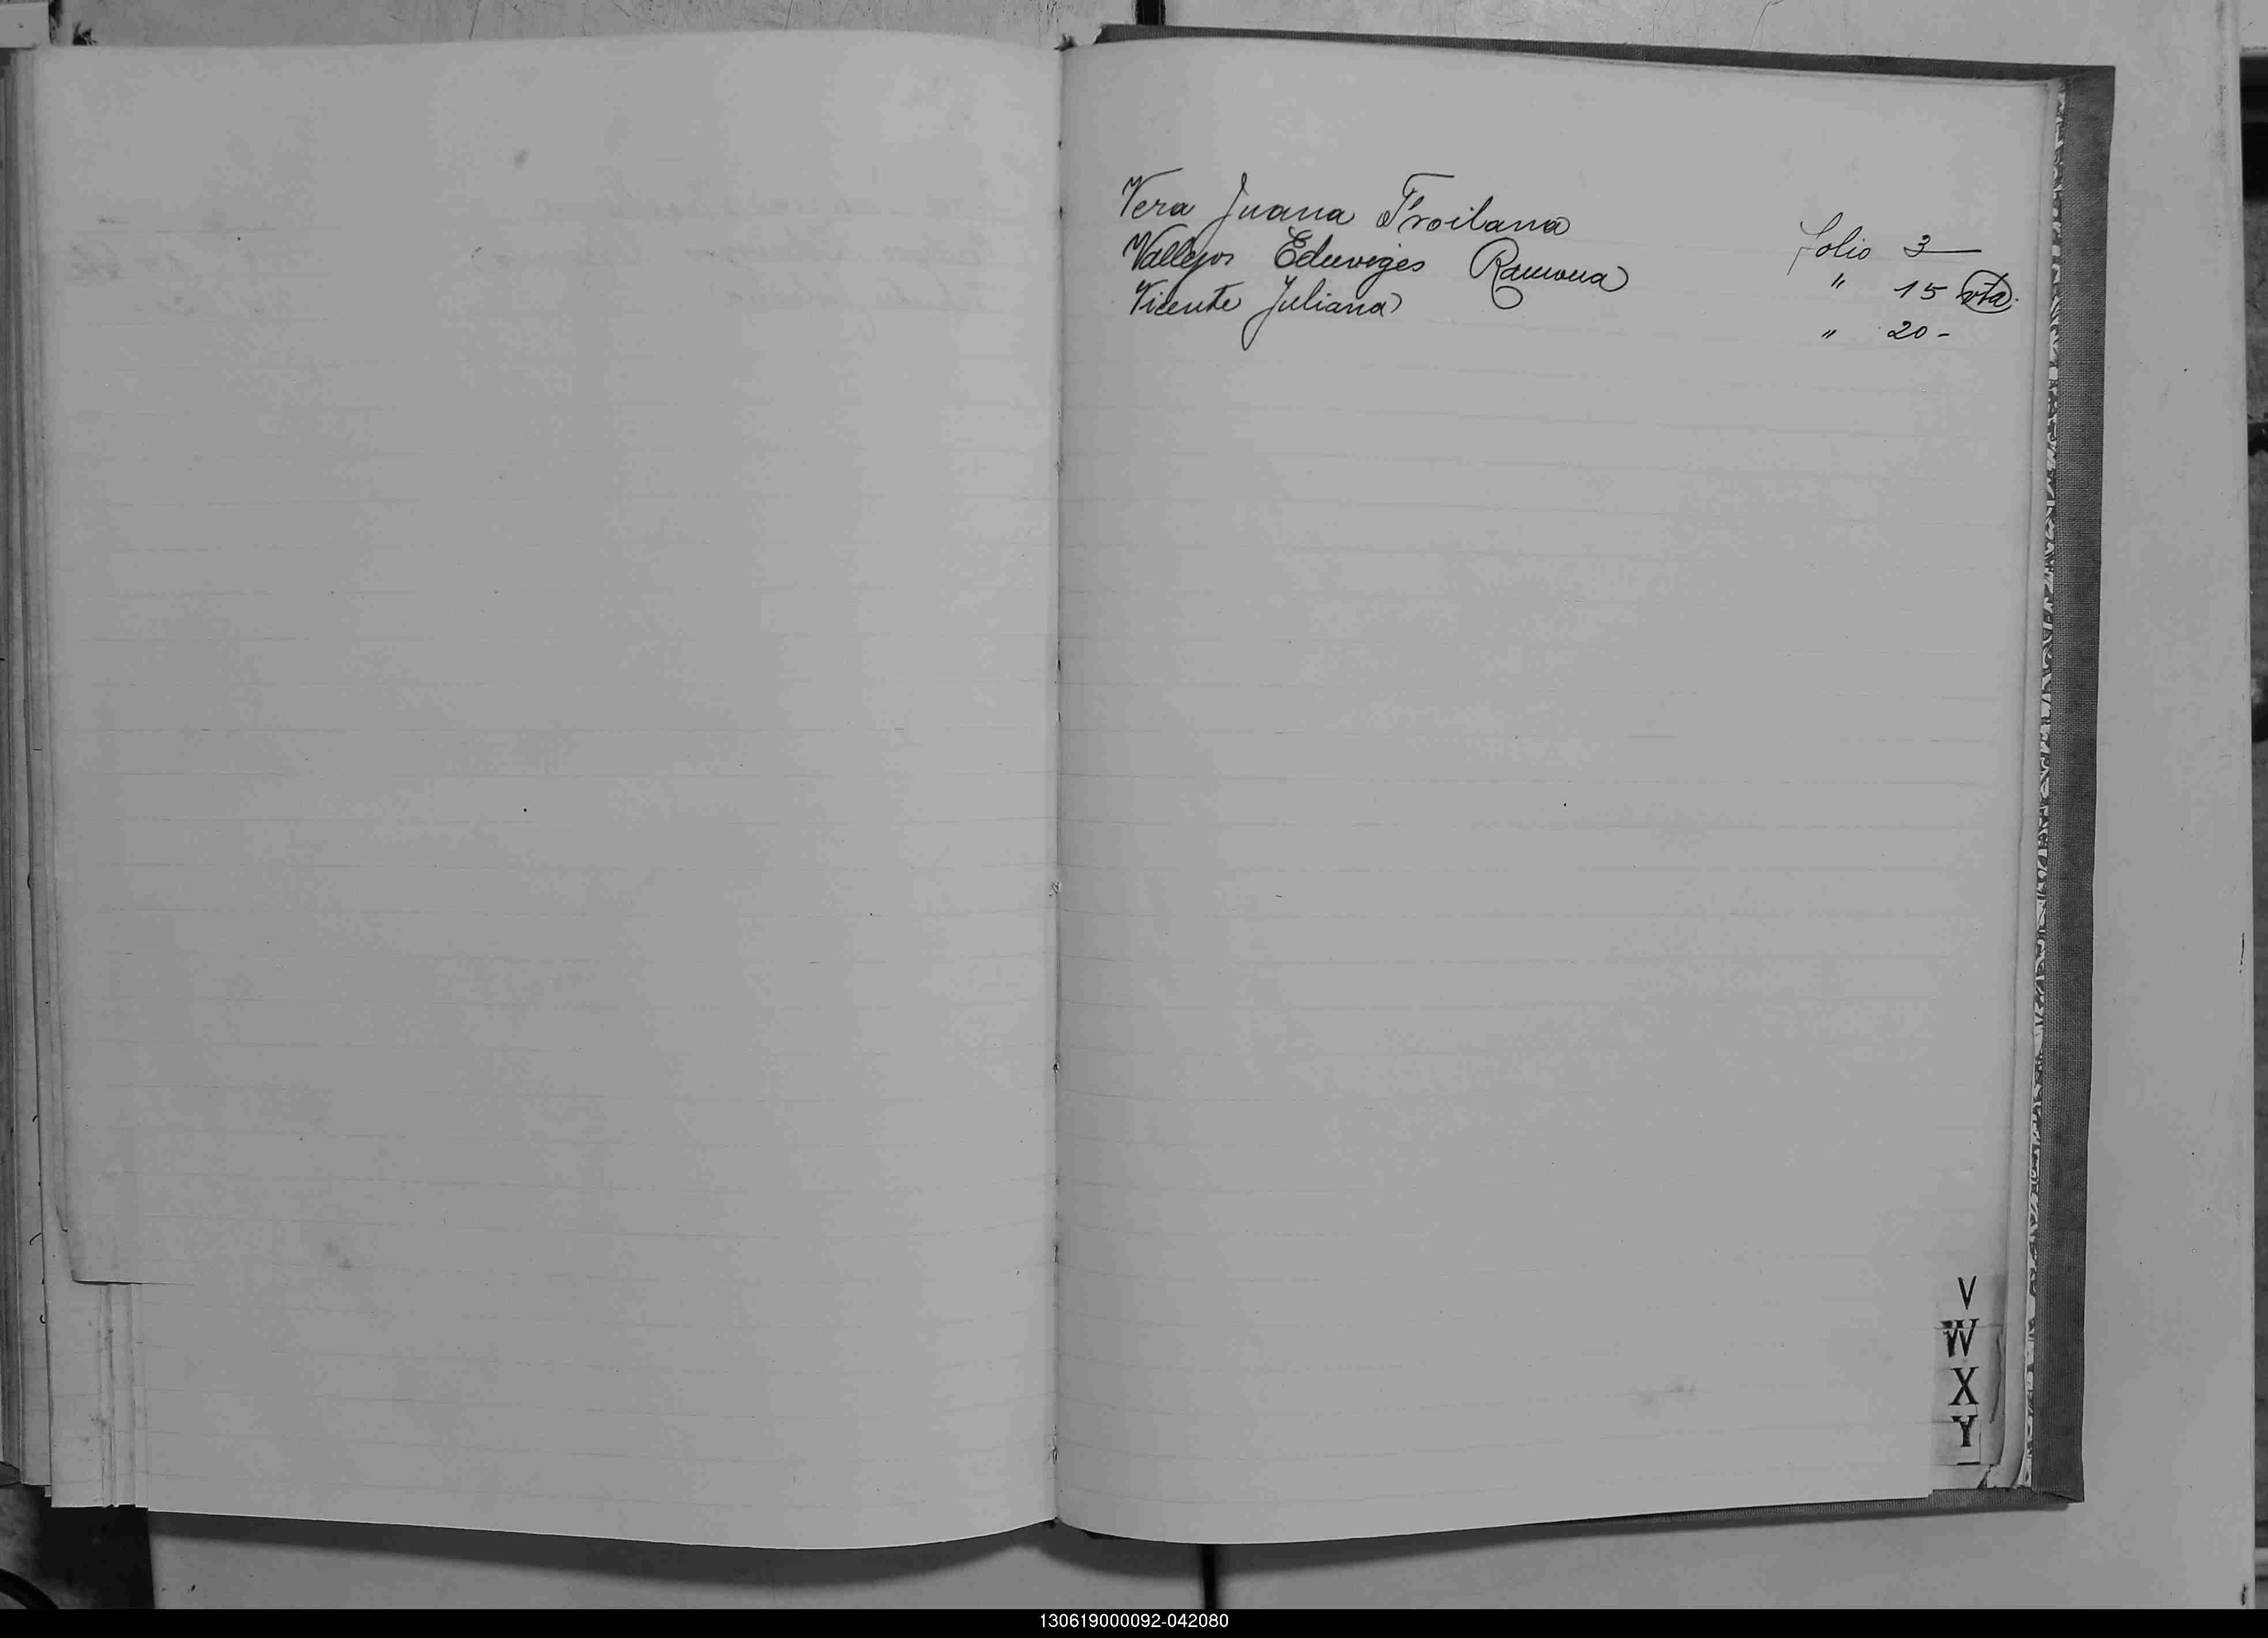 Vera Juana Froilana folio 3
Vallejos Eduviges Ramona " 15 vta.
Vicente Juliana " 20 -
V
W
X
Y
130619000092-042080